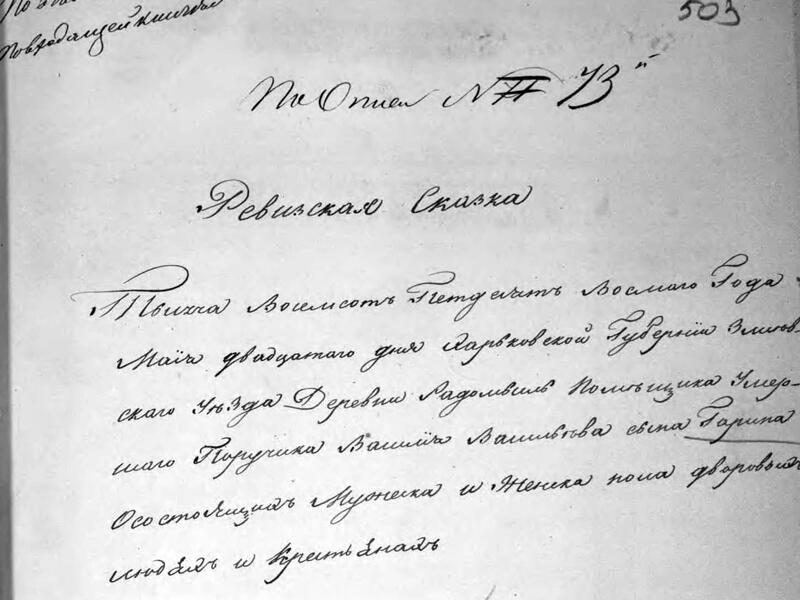 503
повходящей книге
По Описи № 73й
Ревизская Сказка
Тысяча Восемсотъ Петдесятъ Восмаго Года
Маія двадцатаго дня Харьковской Губерніи Зміев-
скаго Уѣзда Деревни Радомысль Помѣщика Умер-
шаго Поручика Василія Васильева сына Гарина
О состоящихъ Мужеска и Женска пола дворовыхъ
людяхъ и Крестьянахъ